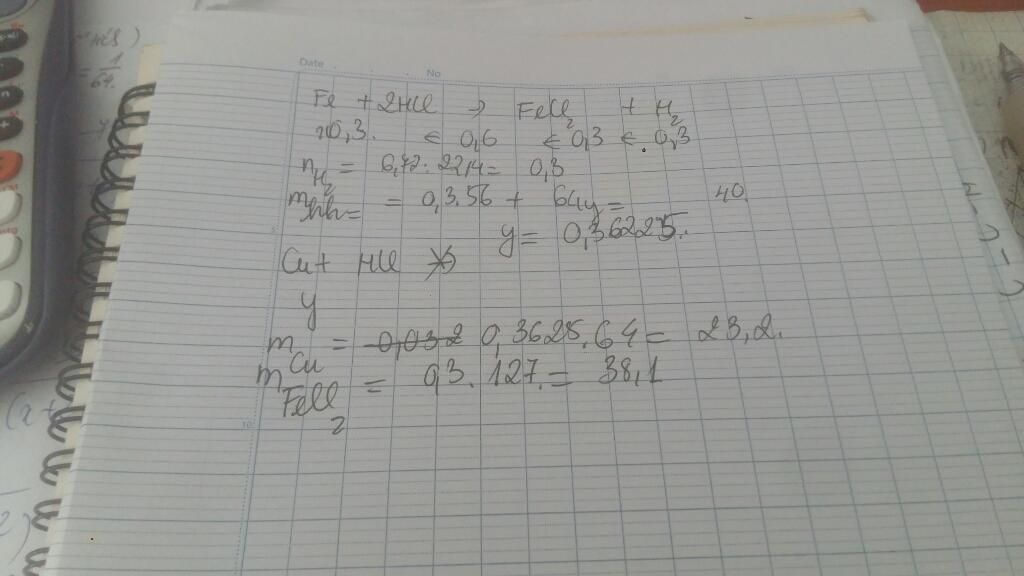 Date No
Fe + 2HCl → FeCl2 + H2
0,3. ← 0,6 ← 0,3 ← 0,3
nH2 = 6,72: 22,4= 0,3
mhh= = 0,3.56 + 64y= 40
y= 0,36225.
Cu+ HCl
y
mCu = 0,032 0,3625.64= 23,2.
mFeCl2 = 0,3.127.= 38,1
5
10